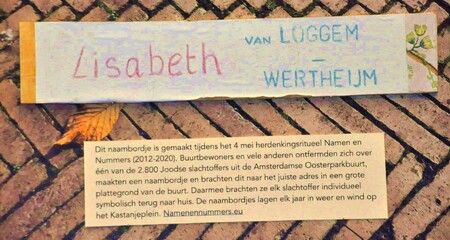 Lisabeth
VAN LOGGEM
–
WERTHEIJM
Dit naambordje is gemaakt tijdens het 4 mei herdenkingsritueel Namen en
Nummers (2012-2020). Buurtbewoners en vele anderen ontfermden zich over
één van de 2.800 Joodse slachtoffers uit de Amsterdamse Oosterparkbuurt,
maakten een naambordje en brachten dit naar het juiste adres in een grote
plattegrond van de buurt. Daarmee brachten ze elk slachtoffer individueel
symbolisch terug naar huis. De naambordjes lagen elk jaar in weer en wind op
het Kastanjeplein. Namenennummers.eu